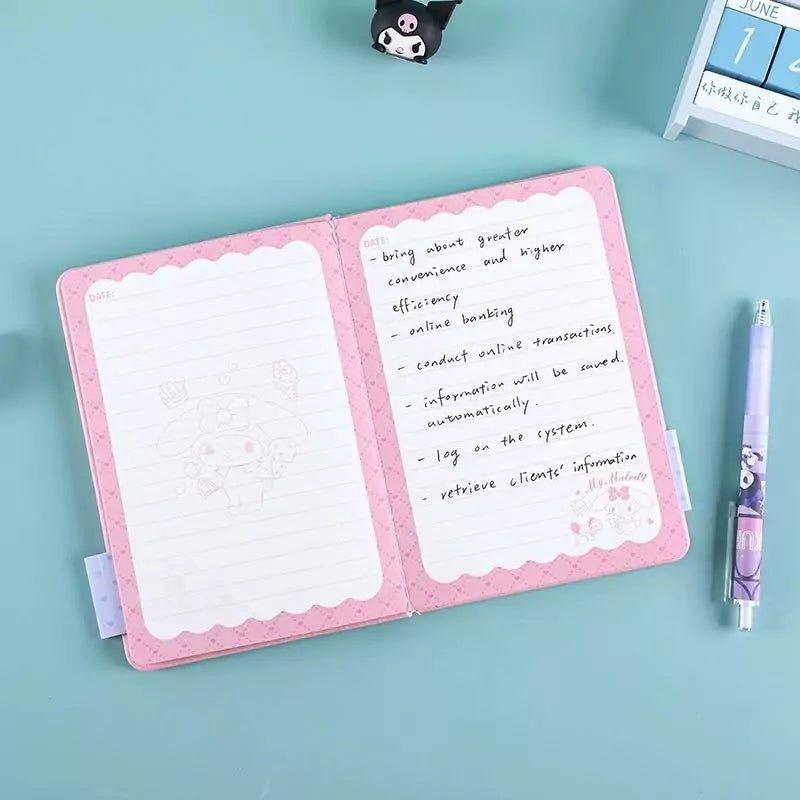 JUNE
1
你做你自己 我
DATE:
DATE:
- bring about greater
convenience and higher
efficiency
- online banking
- conduct online transactions.
- information will be saved.
automatically.
- log on the system.
- retrieve clients' information
My Melody